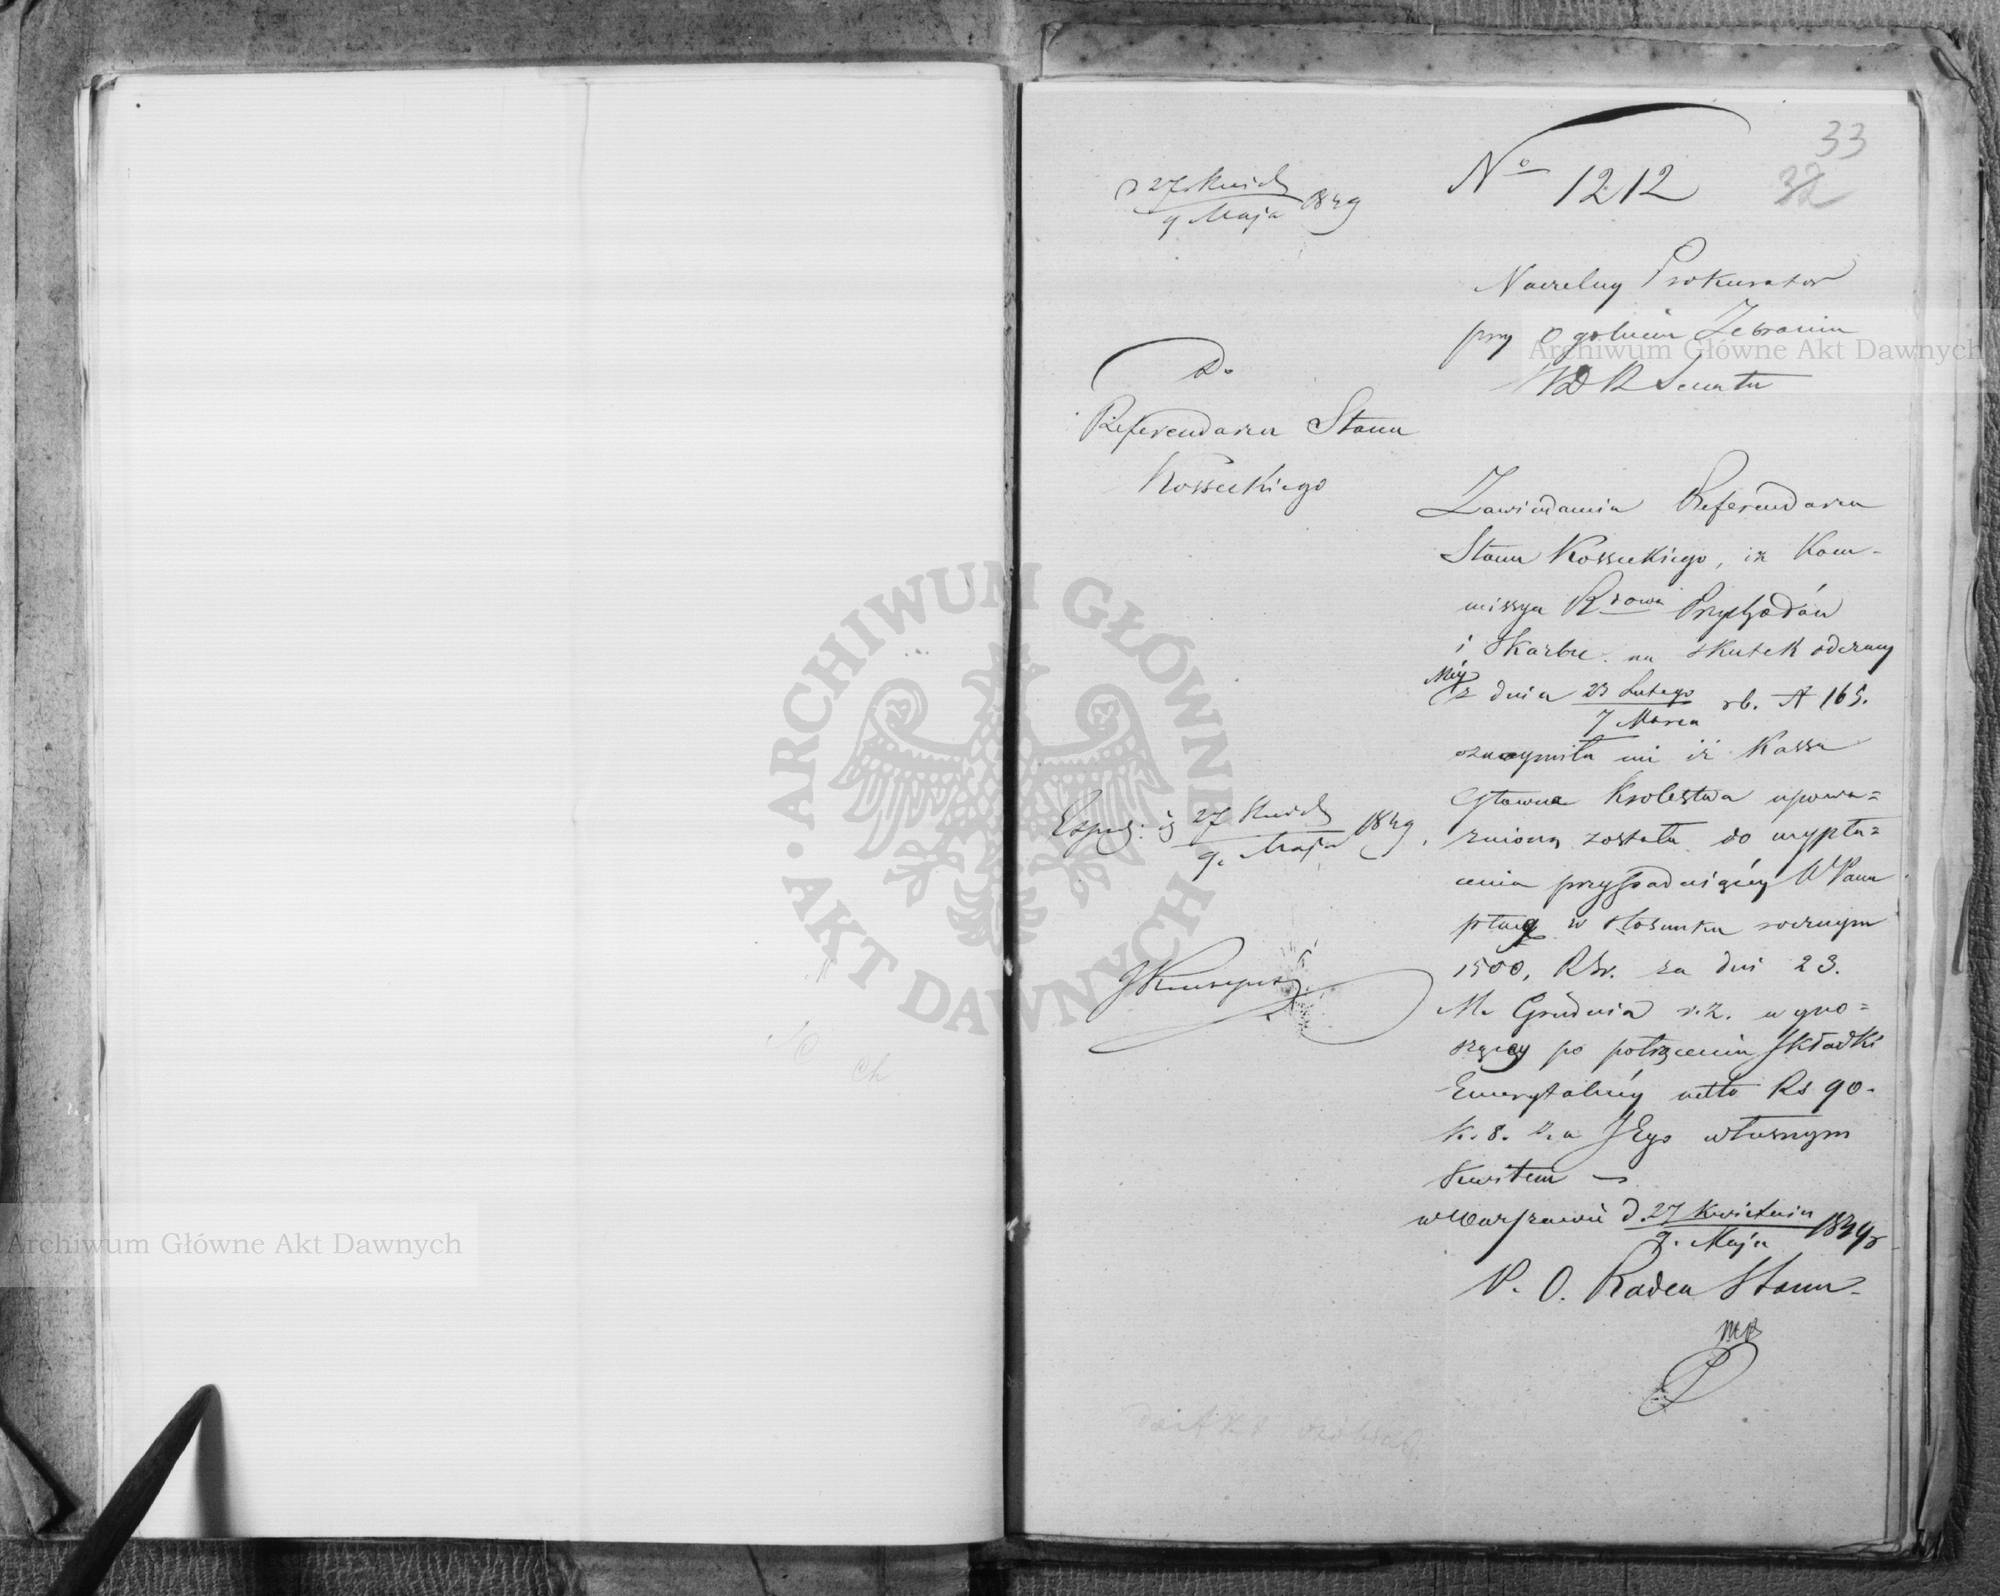 33
32
d 27 Kwiet
9 Maja 1849
No 1212
Naczelny Prokurator
przy Ogolnem Zebraniu
WDR Senatu
Do
Referendarza Stanu
Kosseckiego
Zawiadamia Referendarza
Stanu Kosseckiego, iż Kom-
missya Rzdowa Przychodów
i Skarbu na skutek odezwy
Méy
z dnia 23 Lutego
7 Marca rb. N 165.
oznaymiła mi iż Kassa
Główna Krolestwa upowa=
żnioną została do wypła=
cenia przypadaiącéy WPanu
płacy w stosunku rocznym
1500, RSr. za dni 23.
M. Grudnia r.z. wyno=
szącey po potrąceniu Składki
Emerytalnéy netto Rs 90.
k. 8. za JEgo własnym
Kwitem
w Warszawie d. 27 Kwietnia
9. Maja 1849 r
P. O. Radca Stanu
Exped: d 27 Kwiet
9. Maja 1849.
Archiwum Główne Akt Dawnych
Archiwum Główne Akt Dawnych
ARCHIWUM GŁÓWNE AKT DAWNYCH